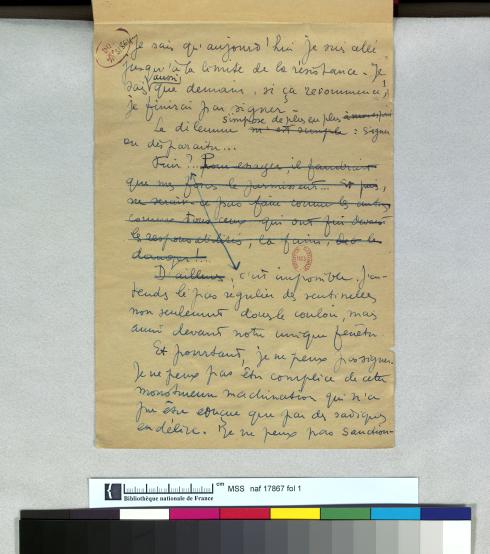 Je sais qu'aujourd'hui je suis allé
jusqu'à la limite de la résistance. Je
sais aussi que demain, si ça recommence,
je finirai par signer.
Le dilemme m'est simple s'impose de plus en plus : signer
ou disparaître...
Fuir ?... Pour essayer, il faudrait
que mes forces le permissent... Et puis,
ne serait-ce pas faire comme les autres
comme tous ceux qui ont fui devant
les responsabilités, la faim, les
dangers !...
D'ailleurs, c'est impossible. J'en-
tends le pas régulier des sentinelles
non seulement dans le couloir, mais
aussi devant notre unique fenêtre
Et pourtant, je ne peux pas signer.
Je ne peux pas être complice de cette
monstrueuse machination qui n'a
pu être conçue que par des sadiques
en délire. Je ne peux pas sanction-
cm
MSS naf 17867 fol 1
Bibliothèque nationale de France